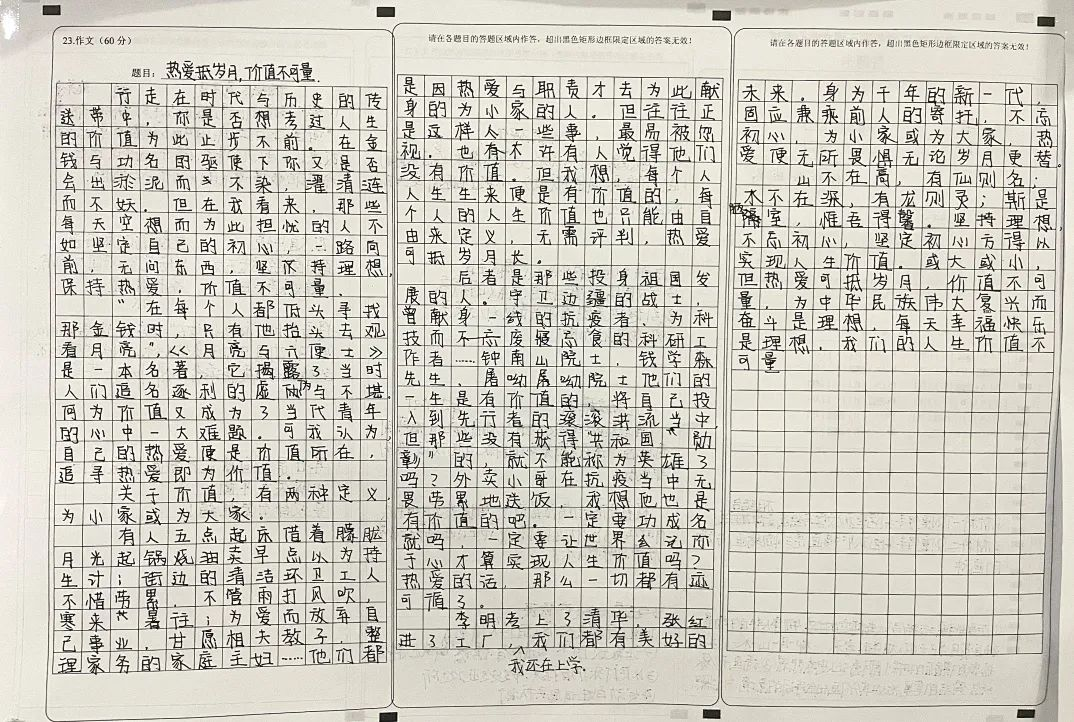 23.作文（60分）
题目：热爱抵岁月，价值不可量
行走在时代与历史的传
送带中，你是否想考过人生
的价值为此止步不前。在金
钱与功名的驱使下你又是否
会出淤泥而不染，濯清涟
而不妖。但在我看来，那些
每天空想而为此担忧的人不
如坚定自己的初心，一路向
前，无问东西，坚保持理想，
保持热爱，价值不可量
“在每个人都低头寻找
那金钱时，只有他抬头去观
看月亮”，《月亮与六便士》
是一本名著，它揭露了当时
人们追名逐利的虚伪与不堪
何为价值又成为了当代青年
的心中一大难题。可我认为，
自己的热爱便是价值所在，
追寻热爱即为价值。
关于价值，有两种定义，
为小家或为大家。
有人五点起床借着朦胧
月光起锅烧油卖早点以为持
生计；街边的清洁环卫工人
不惜劳累，不管雨打风吹，
寒来暑往；为爱而放弃自
己事业，甘愿相夫教子，整
理家务的家庭主妇……他们都
请在各题目的答题区域内作答，超出黑色矩形边框限定区域的答案无效！
是因热爱与职责才去为此献
身的为小家的人。但往往正
是这样人一些事，最易被忽
视。也有不许有人觉得他们
没有价值。但我想，每个人
人生生来便是有价值的，每
个人的人生价值也只能由自
由来定义，无需评判，热爱
可抵岁月长。
后者是那些投身祖国发
展的人。守卫边疆的战士，
曾献身一线的抗疫者，为科
技而不忘废寝忘食的科研工
作者……钟南山院士，钱学森
先生，屠呦屠呦院士他们的
一生是有价值的，将自己投
入到先行者的滚滚洪流当中，
但那些没有获得“共和国“勋
彰”的，就不能称为英雄了
吗？外卖小哥在抗疫当中无
畏劳累地送饭，我想他也是
有价值的吧。一定要功成名
就吗，一定要让世界公元而
于心才算实现人生价值吗？
热爱的话，那么一切都有迹
可循了。
李明考上了清华，张红
进了工厂，我们都有美好的
我还在上学．
请在各题目的答题区域内作答，超出黑色矩形边框限定区域的答案无效！
未来。身为千年的新一代，
固应兼乘前人的寄托，不忘
初心，为小家或为大家，热
爱便无所畏惧无论岁月更替。
山不在高，有仙则名；
水不在深，有龙则灵；斯是
陋室，惟吾得馨。坚持理想，
不忘初心，坚定初心方得以
实现人生价值。或大或小，
但热爱可抵岁月，价值不可
量，为中华民族伟大复兴而
奋斗是理想，每天幸福快乐
是理想，我们的人生价值不
可量